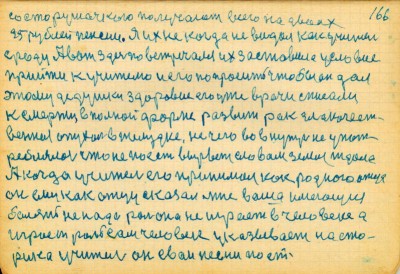 166.
со старушачкого получают всего на двоих
25 рублей пенсии. Я их не когда не видал как учител
сроду. А вот здесь встречали их заставила условие
прийти к учителю и его попросить чтобы он дал
этому дедушки здоровие его уже врачи списали
к смерти в полной форме развит рак злокачест-
венной опухол в желудке, не чего во внутрь не упот-
реблял что не поест вырвет словам земли ждала
А когда учител его принимал как родного отца
он ему как отцу сказал мне ваша имеющия
болезнь не надо рол она не играет в человеке а
играет рол сам человек указывает на сто-
рика учител он свои песни поет.